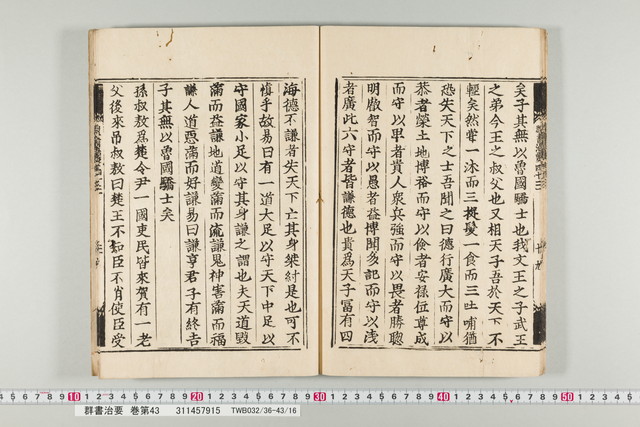 矣子其無以魯國驕士也我文王之子武王
之弟今王之叔父也又相天子吾於天下不
輕矣然嘗一沐而三握髮一食而三吐哺猶
恐失天下之士吾聞之曰德行廣大而守以
恭者榮土地博裕而守以儉者安祿位尊成
而守以卑者貴人衆兵強而守以畏者勝聰
明叡智而守以愚者益博聞多記而守以淺
者廣此六守者皆謙德也貴爲天子富有四
海德不謙者失天下亡其身桀紂是也可不
慎乎故易曰有一道大足以守天下中足以
守國家小足以守其身謙之謂也夫天道毀
滿而益謙地道變滿而流謙鬼神害滿而福
謙人道惡滿而好謙易曰謙亨君子有終吉
子其無以魯國驕士矣
孫叔敖爲楚令尹一國吏民皆來賀有一老
父後來吊叔敖曰楚王不知臣不肖使臣受
10 20 30 40 50
群書治要 巻第43 311457915 TWB032/36-43/16